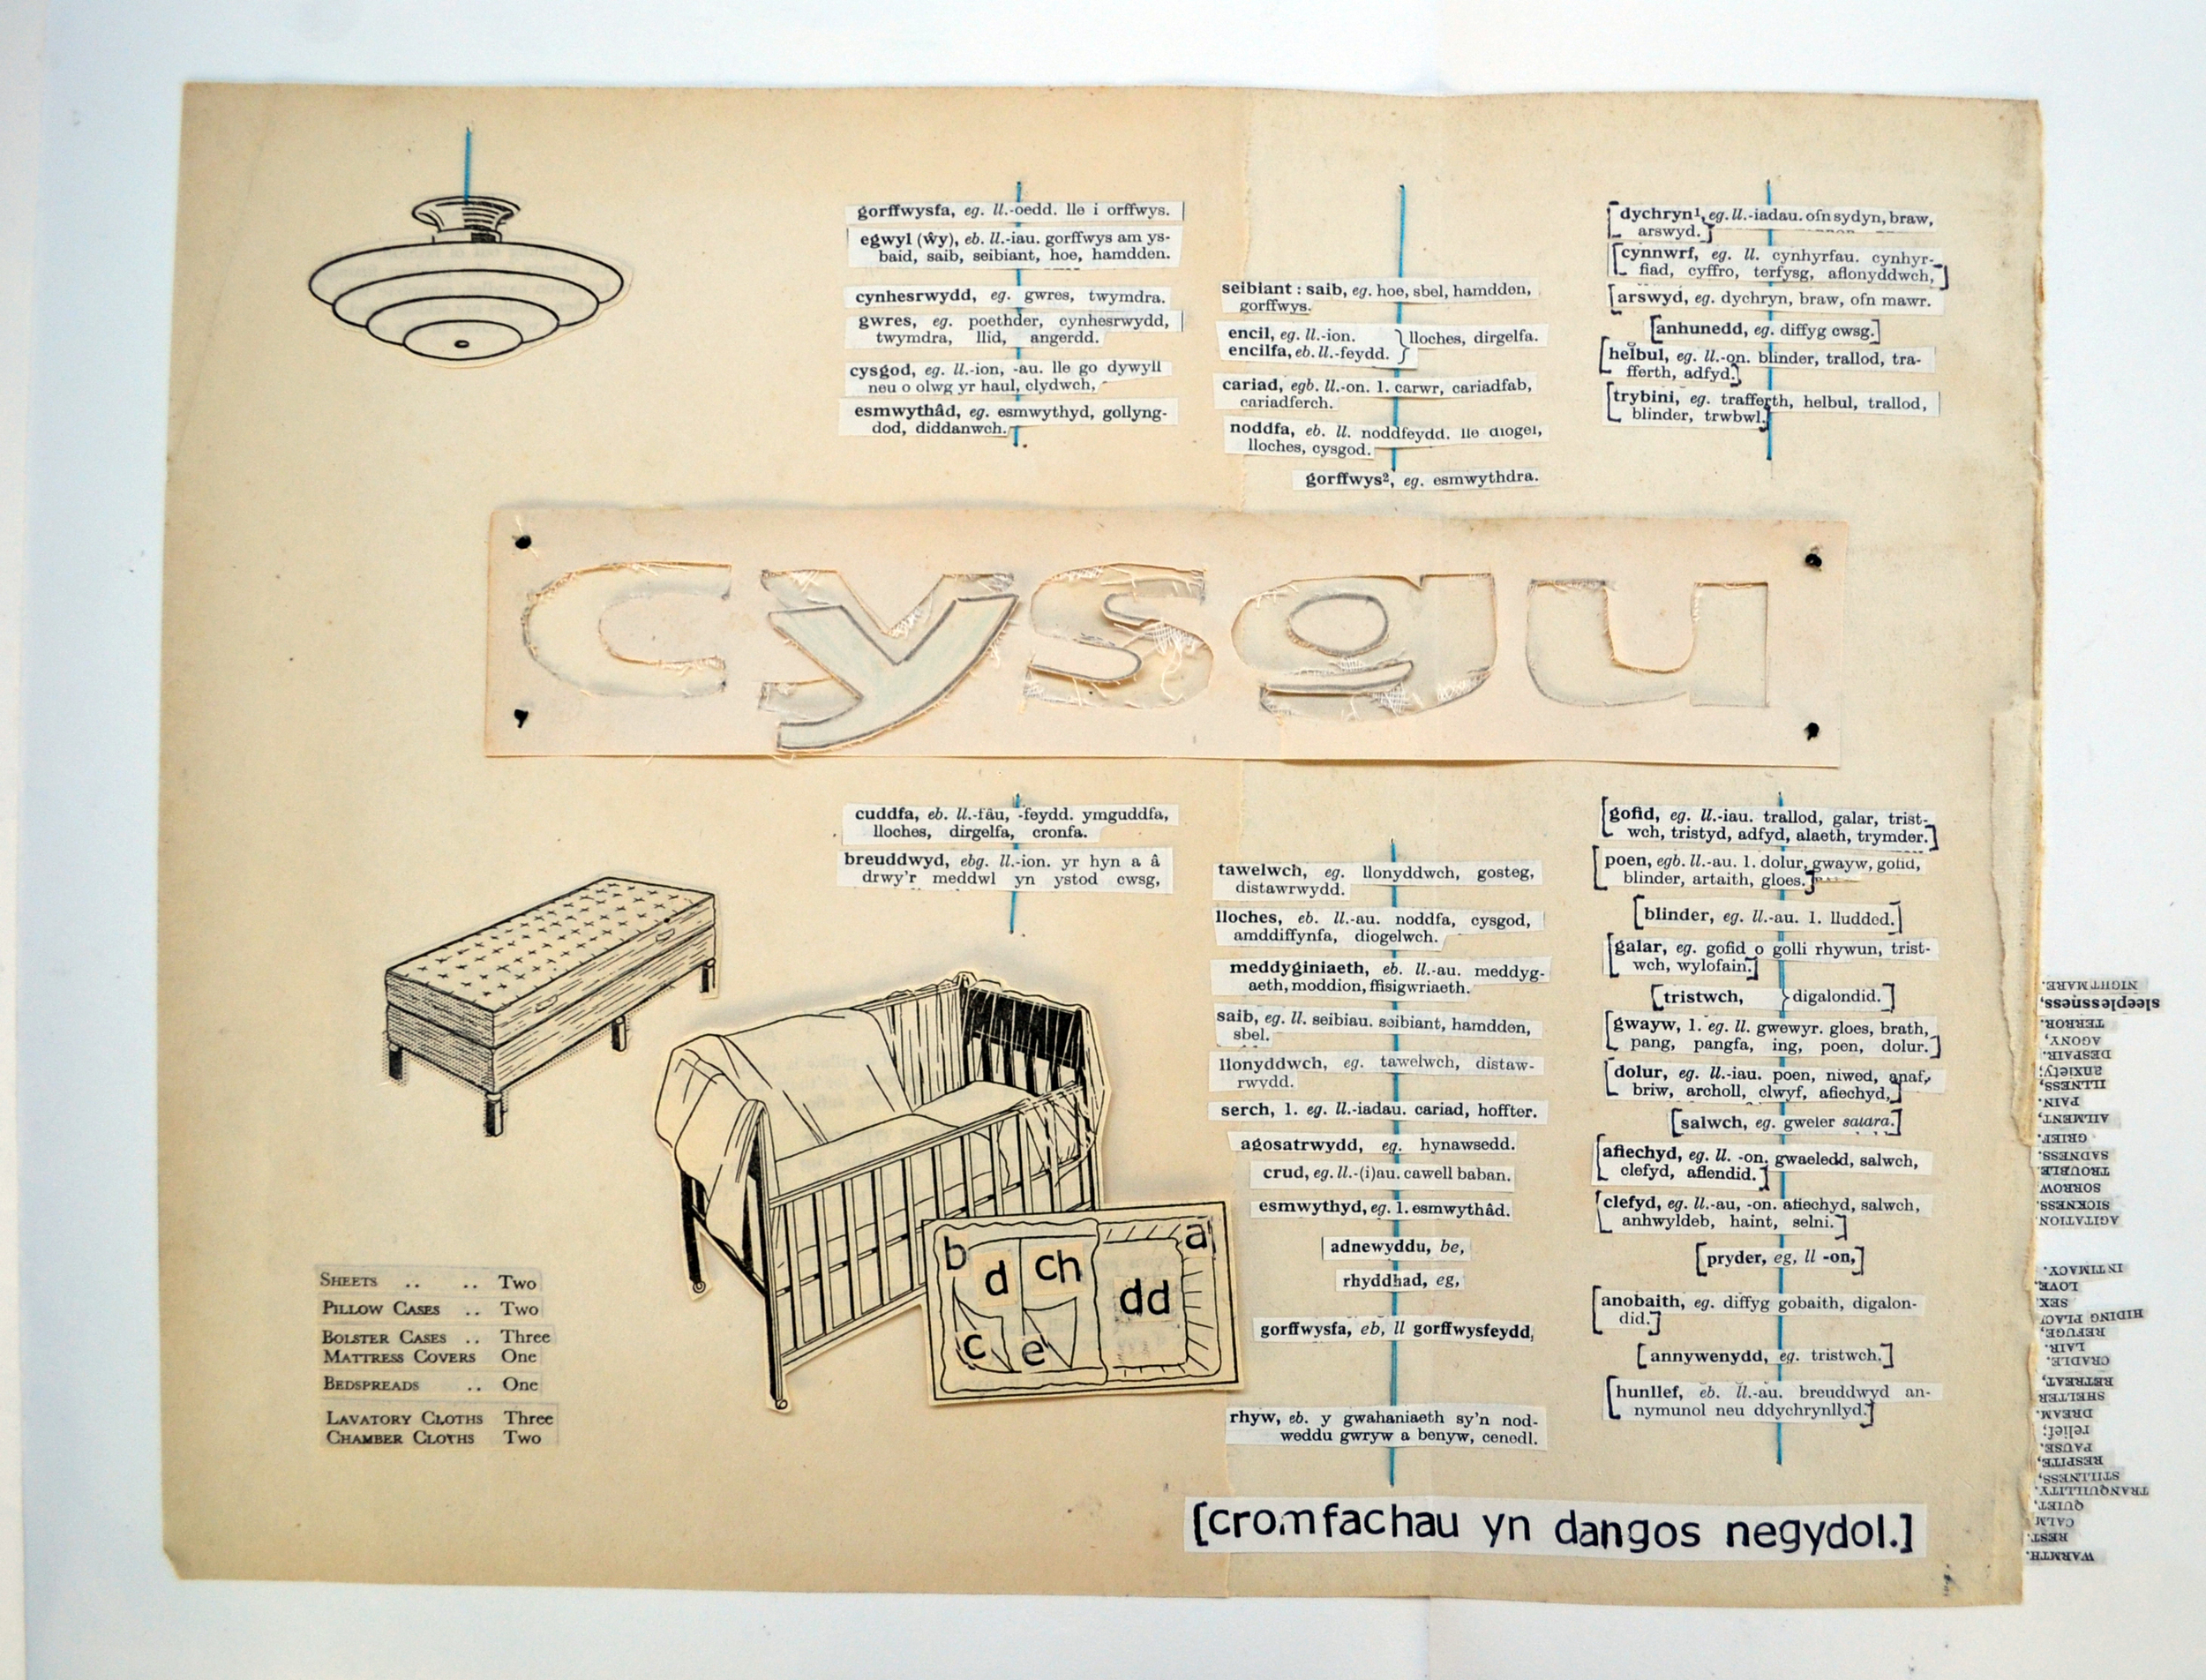 gorffwysfa, eg. ll.-oedd. lle i orffwys.
egwyl (ŵy), eb. ll.-iau. gorffwys am ys-
baid, saib, seibiant, hoe, hamdden.
cynhesrwydd, eg. gwres, twymdra.
gwres, eg. poethder, cynhesrwydd,
twymdra, llid, angerdd.
cysgod, eg. ll.-ion, -au. lle go dywyll
neu o olwg yr haul, clydwch,
esmwythâd, eg. esmwythyd, gollyng-
dod, diddanwch.
seibiant : saib, eg. hoe, sbel, hamdden,
gorffwys.
encil, eg. ll.-ion.
encilfa, eb. ll.-feydd. } lloches, dirgelfa.
cariad, egb. ll.-on. 1. carwr, cariadfab,
cariadferch.
noddfa, eb. ll. noddfeydd. lle diogel,
lloches, cysgod.
gorffwys², eg. esmwythdra.
[dychryn¹, eg. ll.-iadau. ofn sydyn, braw,
arswyd.]
[cynnwrf, eg. ll. cynhyrfau. cynhyr-
fiad, cyffro, terfysg, aflonyddwch,]
[arswyd, eg. dychryn, braw, ofn mawr.
[anhunedd, eg. diffyg cwsg.]
[helbul, eg. ll.-on. blinder, trallod, tra-
fferth, adfyd.]
[trybini, eg. trafferth, helbul, trallod,
blinder, trwbwl.]
cysgu
cuddfa, eb. ll.-fâu, -feydd. ymguddfa,
lloches, dirgelfa, cronfa.
breuddwyd, ebg. ll.-ion. yr hyn a â
drwy'r meddwl yn ystod cwsg,
tawelwch, eg. llonyddwch, gosteg,
distawrwydd.
lloches, eb. ll.-au. noddfa, cysgod,
amddiffynfa, diogelwch.
meddyginiaeth, eb. ll.-au. meddyg-
aeth, moddion, ffisigwriaeth.
saib, eg. ll. seibiau. seibiant, hamdden,
sbel.
llonyddwch, eg. tawelwch, distaw-
rwydd.
serch, 1. eg. ll.-iadau. cariad, hoffter.
agosatrwydd, eg. hynawsedd.
crud, eg. ll.-(i)au. cawell baban.
esmwythyd, eg. 1. esmwythâd.
adnewyddu, be,
rhyddhad, eg,
gorffwysfa, eb, ll gorffwysfeydd,
rhyw, eb. y gwahaniaeth sy'n nod-
weddu gwryw a benyw, cenedl.
[gofid, eg. ll.-iau. trallod, galar, trist-
wch, tristyd, adfyd, alaeth, trymder.]
[poen, egb. ll.-au. 1. dolur, gwayw, gofid,
blinder, artaith, gloes.]
[blinder, eg. ll.-au. 1. lludded.]
[galar, eg. gofid o golli rhywun, trist-
wch, wylofain.]
[tristwch, } digalondid.]
[gwayw, 1. eg. ll. gwewyr. gloes, brath,
pang, pangfa, ing, poen, dolur.]
[dolur, eg. ll.-iau. poen, niwed, anaf,
briw, archoll, clwyf, afiechyd,]
[salwch, eg. gweler salara.]
[afiechyd, eg. ll. -on. gwaeledd, salwch,
clefyd, aflendid.]
[clefyd, eg. ll.-au, -on. afiechyd, salwch,
anhwyldeb, haint, selni.]
[pryder, eg, ll -on,]
[anobaith, eg. diffyg gobaith, digalon-
did.]
[annywenydd, eg. tristwch.]
[hunllef, eb. ll.-au. breuddwyd an-
nymunol neu ddychrynllyd.]
SHEETS .. .. Two
PILLOW CASES .. Two
BOLSTER CASES .. Three
MATTRESS COVERS One
BEDSPREADS .. One
LAVATORY CLOTHS Three
CHAMBER CLOTHS Two
a
b
d
ch
dd
c
e
[cromfachau yn dangos negydol.]
WARMTH.
REST.
CALM
QUIET,
TRANQUILLITY.
STILLNESS,
RESPITE,
PAUSE.
relief;
DREAM.
SHELTER
RETREAT,
CRADLE.
LAIR.
REFUGE,
HIDING PLACE
SEX.
LOVE.
INTIMACY.
AGITATION
SICKNESS.
SORROW
TROUBLE.
SADNESS.
GRIEF.
AILMENT,
PAIN.
ILLNESS,
anxiety;
DESPAIR.
AGONY,
TERROR.
sleeplessness,
NIGHTMARE.